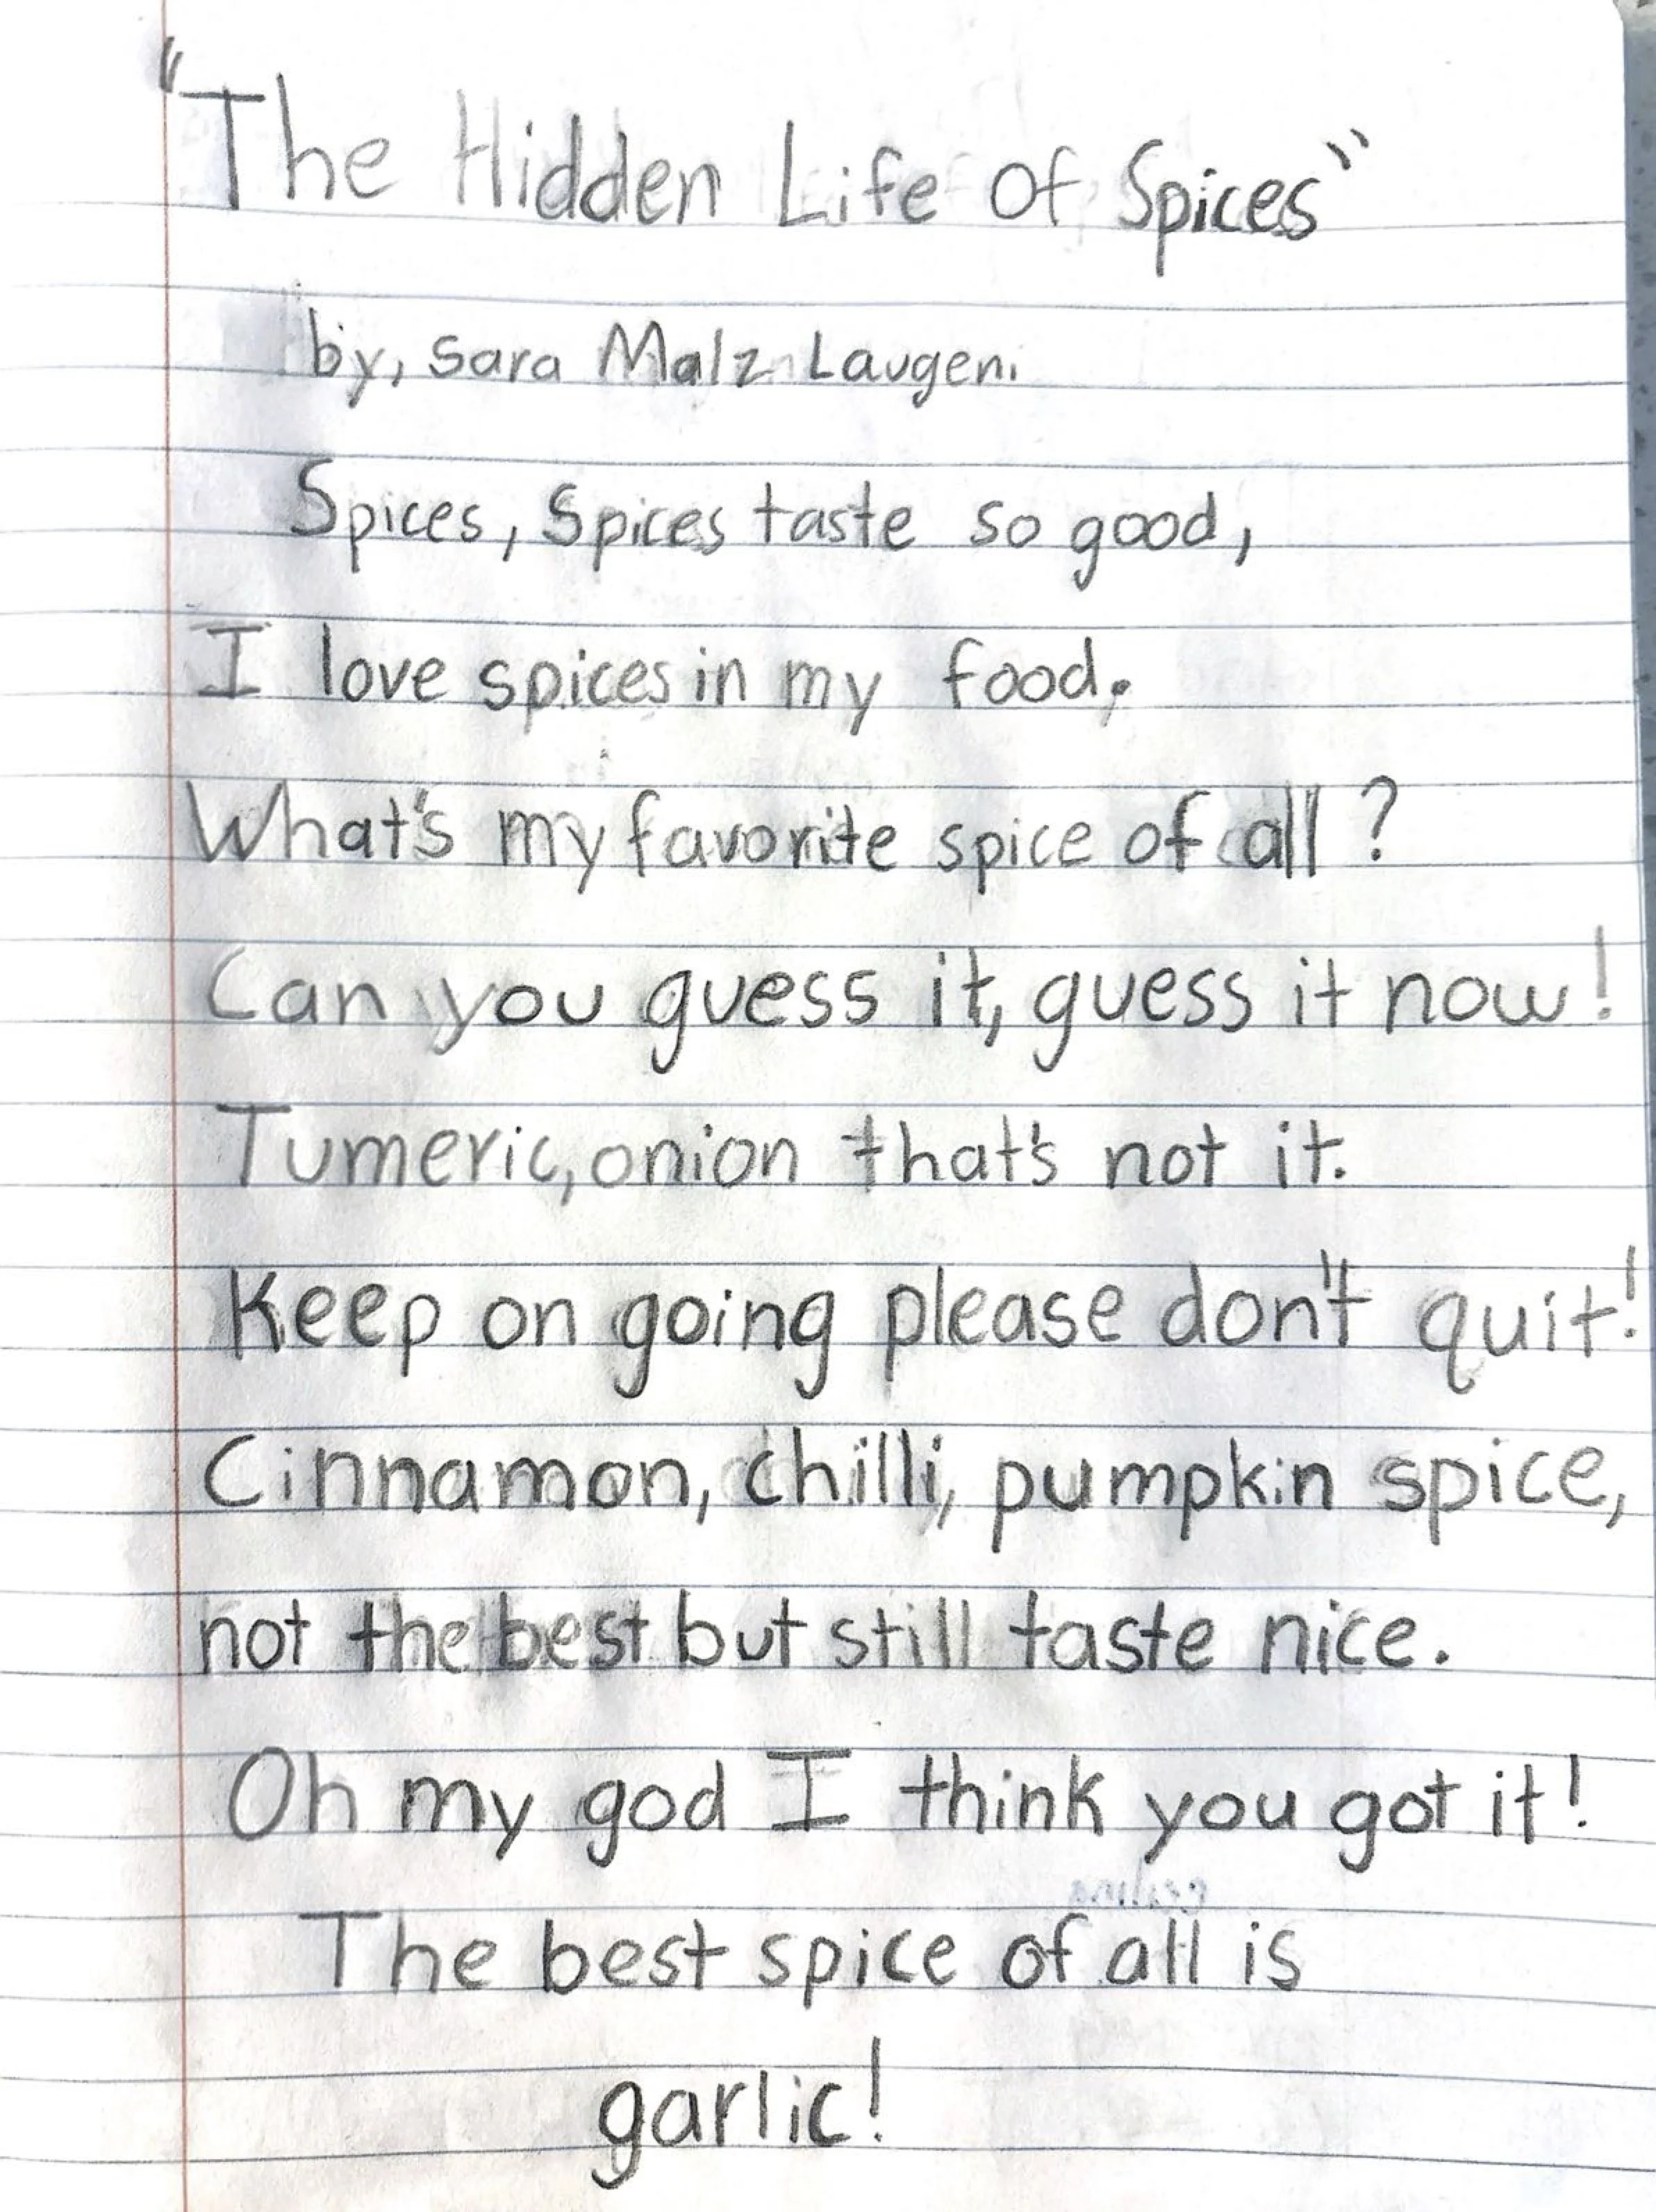 "The Hidden Life Of Spices"
by, Sara Malz Laugen.
Spices, Spices taste so good,
I love spices in my food.
What's my favorite spice of all?
Can you guess it, guess it now!
Tumeric, onion that's not it.
Keep on going please don't quit!
Cinnamon, chilli, pumpkin spice,
not the best but still taste nice.
Oh my god I think you got it!
The best spice of all is
garlic!